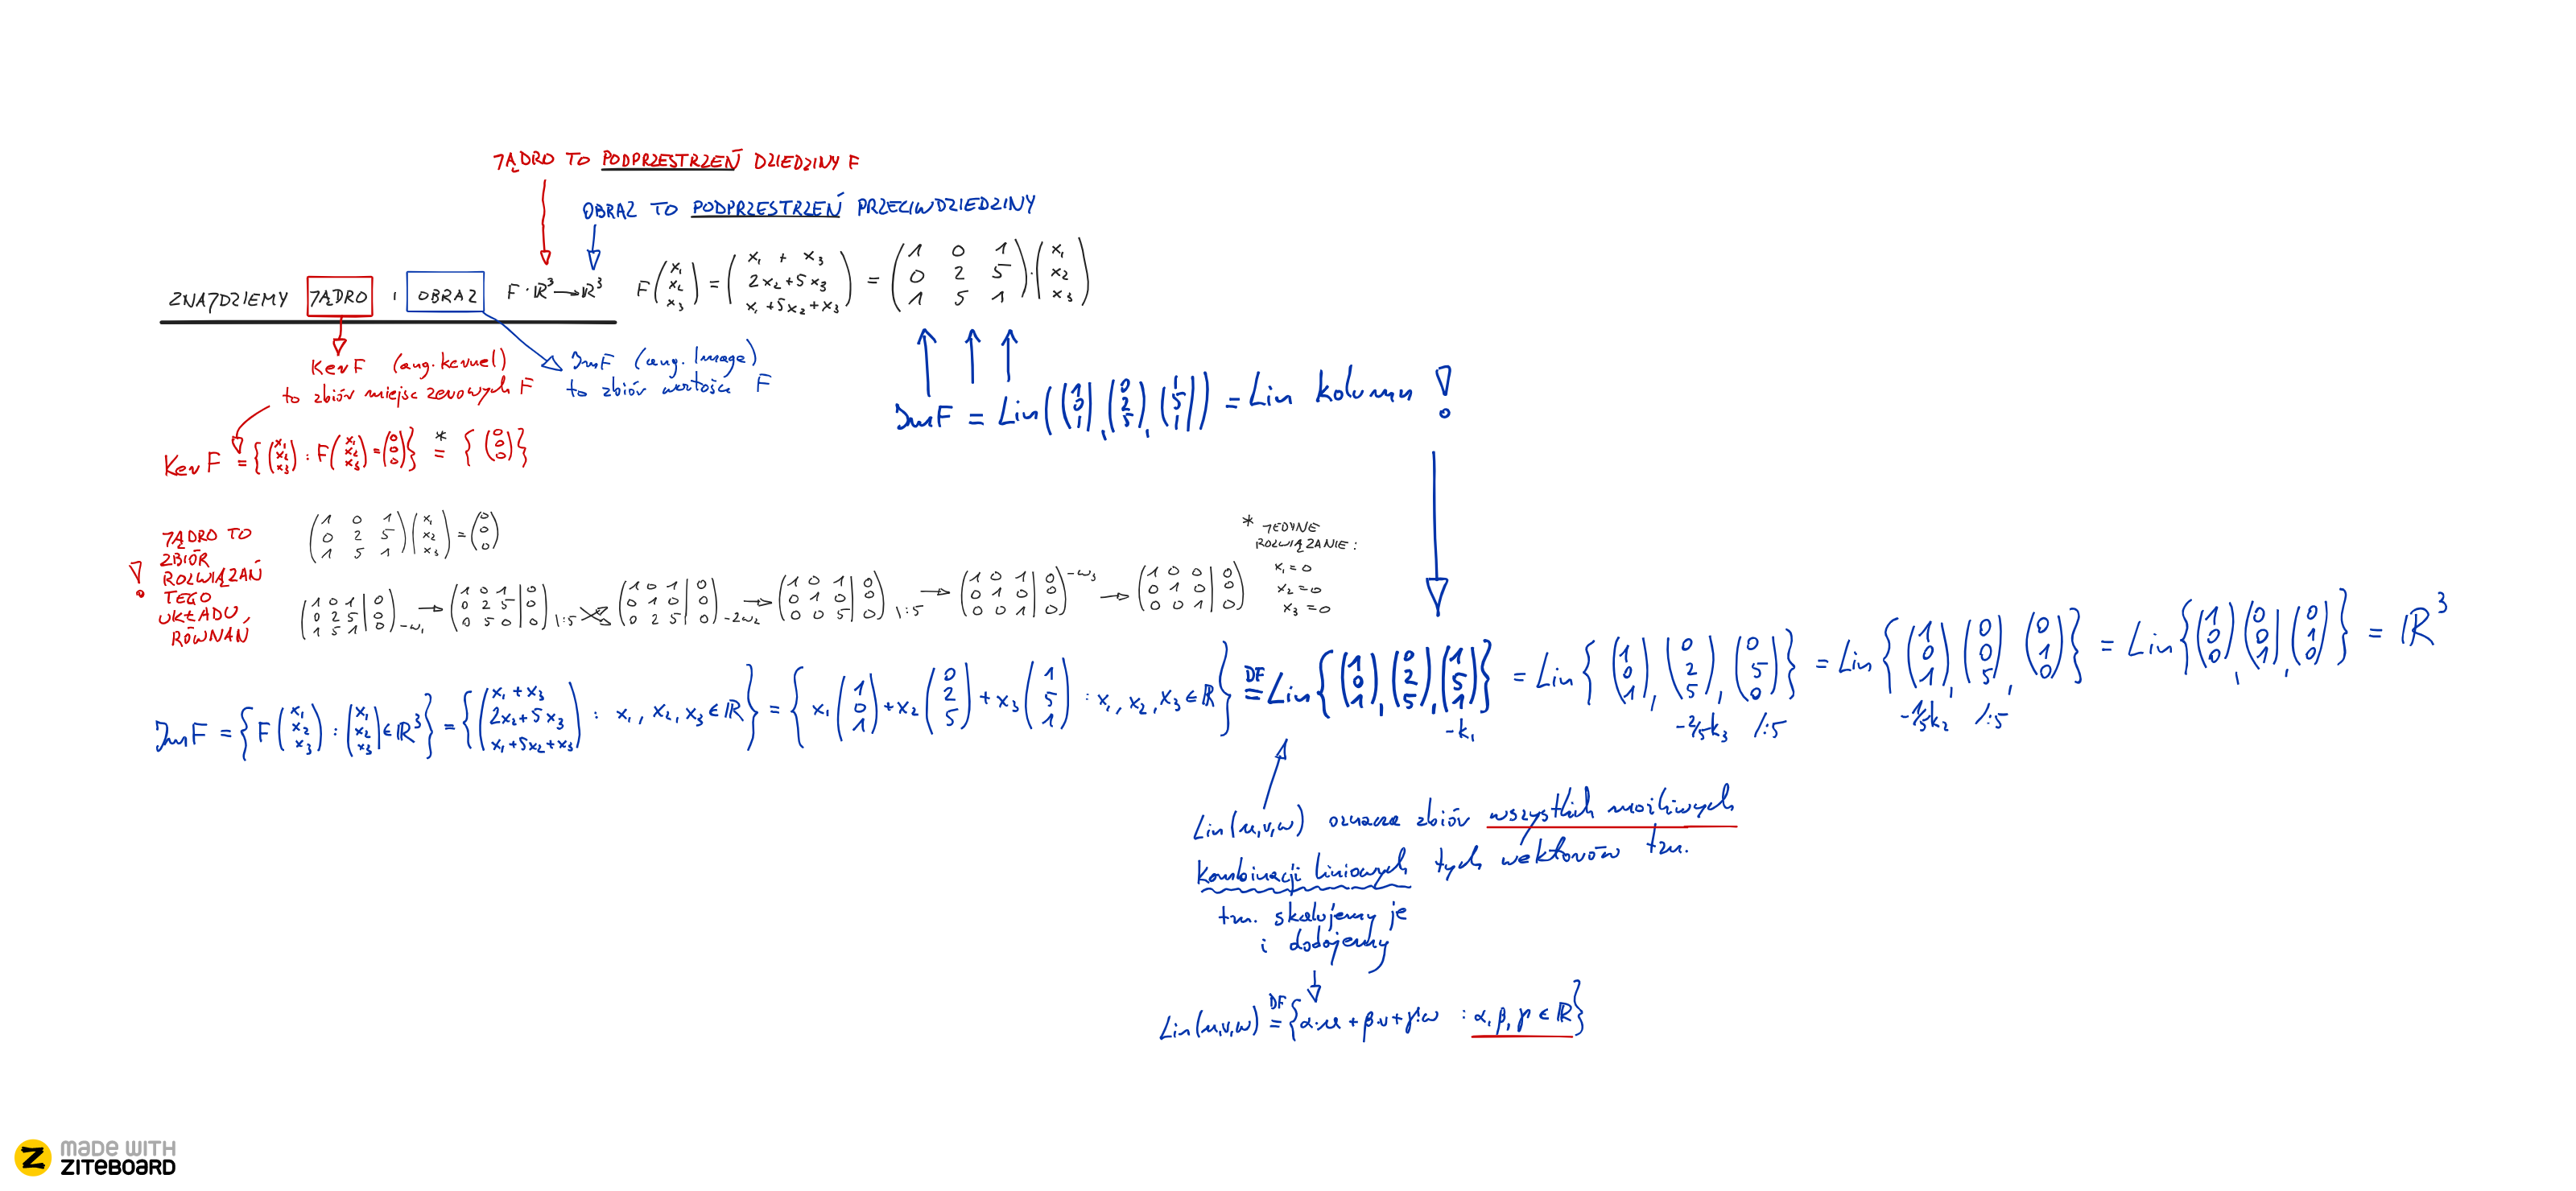 JĄDRO TO PODPRZESTRZEŃ DZIEDZINY F
OBRAZ TO PODPRZESTRZEŃ PRZECIWDZIEDZINY
ZNAJDZIEMY JĄDRO i OBRAZ F: ℝ³ → ℝ³ F(x₁ x₂ x₃) = (x₁ + x₃ 2x₂+5x₃ x₁+5x₂+x₃) = (1 0 1 0 2 5 1 5 1)·(x₁ x₂ x₃)
Ker F (ang. kernel)
to zbiór miejsc zerowych F
Im F (ang. Image)
to zbiór wartości F
Im F = Lin((1 0 1), (0 2 5), (1 5 1)) = Lin kolumn !
Ker F = {(x₁ x₂ x₃) : F(x₁ x₂ x₃) = (0 0 0)} *= {(0 0 0)}
! JĄDRO TO
ZBIÓR
ROZWIĄZAŃ
TEGO
UKŁADU,
RÓWNAŃ
(1 0 1 0 2 5 1 5 1)(x₁ x₂ x₃) = (0 0 0)
* JEDYNE
ROZWIĄZANIE:
x₁ = 0
x₂ = 0
x₃ = 0
(1 0 1 | 0 0 2 5 | 0 1 5 1 | 0) -w₁ → (1 0 1 | 0 0 2 5 | 0 0 5 0 | 0) |:5 (1 0 1 | 0 0 1 0 | 0 0 2 5 | 0) -2w₂ → (1 0 1 | 0 0 1 0 | 0 0 0 5 | 0) |:5 → (1 0 1 | 0 0 1 0 | 0 0 0 1 | 0) -w₃ → (1 0 0 | 0 0 1 0 | 0 0 0 1 | 0)
Im F = {F(x₁ x₂ x₃) : (x₁ x₂ x₃) ∈ ℝ³} = {(x₁+x₃ 2x₂+5x₃ x₁+5x₂+x₃) : x₁, x₂, x₃ ∈ ℝ} = {x₁(1 0 1) + x₂(0 2 5) + x₃(1 5 1) : x₁, x₂, x₃ ∈ ℝ} DF= Lin{(1 0 1), (0 2 5), (1 5 1)} = Lin{(1 0 1), (0 2 5), (0 5 0)} = Lin{(1 0 1), (0 0 5), (0 1 0)} = Lin{(1 0 0), (0 0 1), (0 1 0)} = ℝ³
-k₁ -2/5k₃ /:5 -1/5k₂ /:5
Lin(u,v,w) oznacza zbiór wszystkich możliwych
kombinacji liniowych tych wektorów tzn.
tzn. skalujemy je
i dodajemy
Lin(u,v,w) DF= {α·u + β·v + γ·w : α, β, γ ∈ ℝ}
MADE WITH
ZITEBOARD